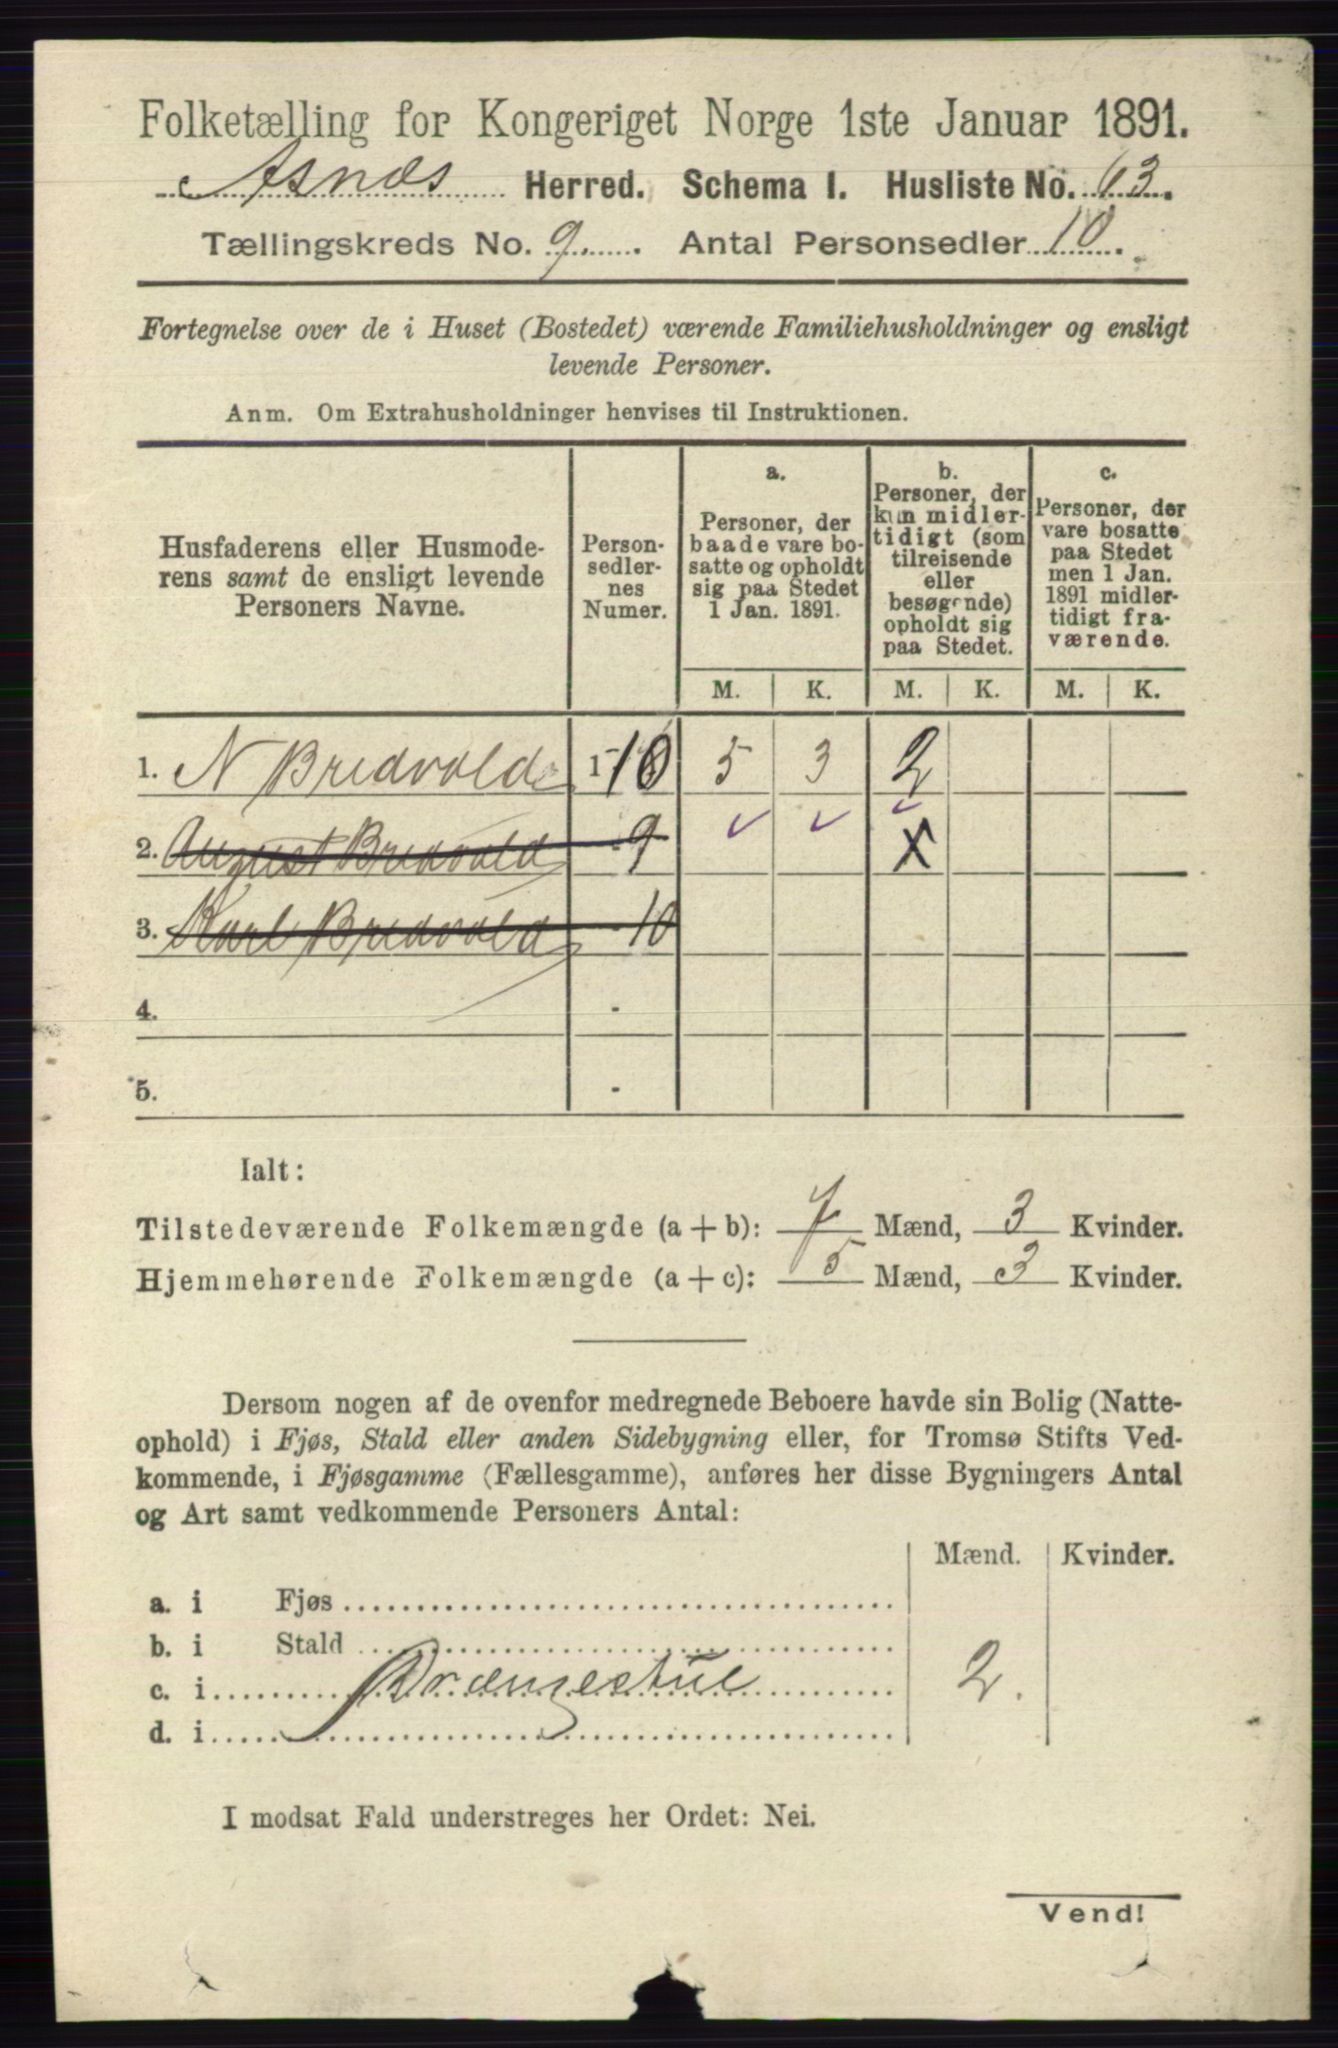 Folketælling for Kongeriget Norge 1ste Januar 1891.
Asnæs Herred. Schema I. Husliste No. 63.
Tællingskreds No. 9. Antal Personsedler 10.
Fortegnelse over de i Huset (Bostedet) værende Familiehusholdninger og ensligt
levende Personer.
Anm. Om Extrahusholdninger henvises til Instruktionen.
Husfaderens eller Husmode-
rens samt de ensligt levende
Personers Navne.
Person-
sedler-
nes
Numer.
a.
Personer, der
baade vare bo-
satte og opholdt
sig paa Stedet
1 Jan. 1891.
b.
Personer, der
kun midler-
tidigt (som
tilreisende
eller
besøgende)
opholdt sig
paa Stedet.
c.
Personer, der
vare bosatte
paa Stedet
men 1 Jan.
1891 midler-
tidigt fra-
værende.
M. K. M. K. M. K.
1. N Bredvold 1-10 5 3 2
2. August Bredvold - 9 X
3. Karl Bredvold - 10
4. -
5. -
Ialt:
Tilstedeværende Folkemængde (a + b): 7 Mænd, 3 Kvinder.
Hjemmehørende Folkemængde (a + c): 5 Mænd, 3 Kvinder.
Dersom nogen af de ovenfor medregnede Beboere havde sin Bolig (Natte-
ophold) i Fjøs, Stald eller anden Sidebygning eller, for Tromsø Stifts Ved-
kommende, i Fjøsgamme (Fællesgamme), anføres her disse Bygningers Antal
og Art samt vedkommende Personers Antal:
Mænd. Kvinder.
a. i Fjøs
b. i Stald
c. i Drængestue 2.
d. i
I modsat Fald understreges her Ordet: Nei.
Vend!